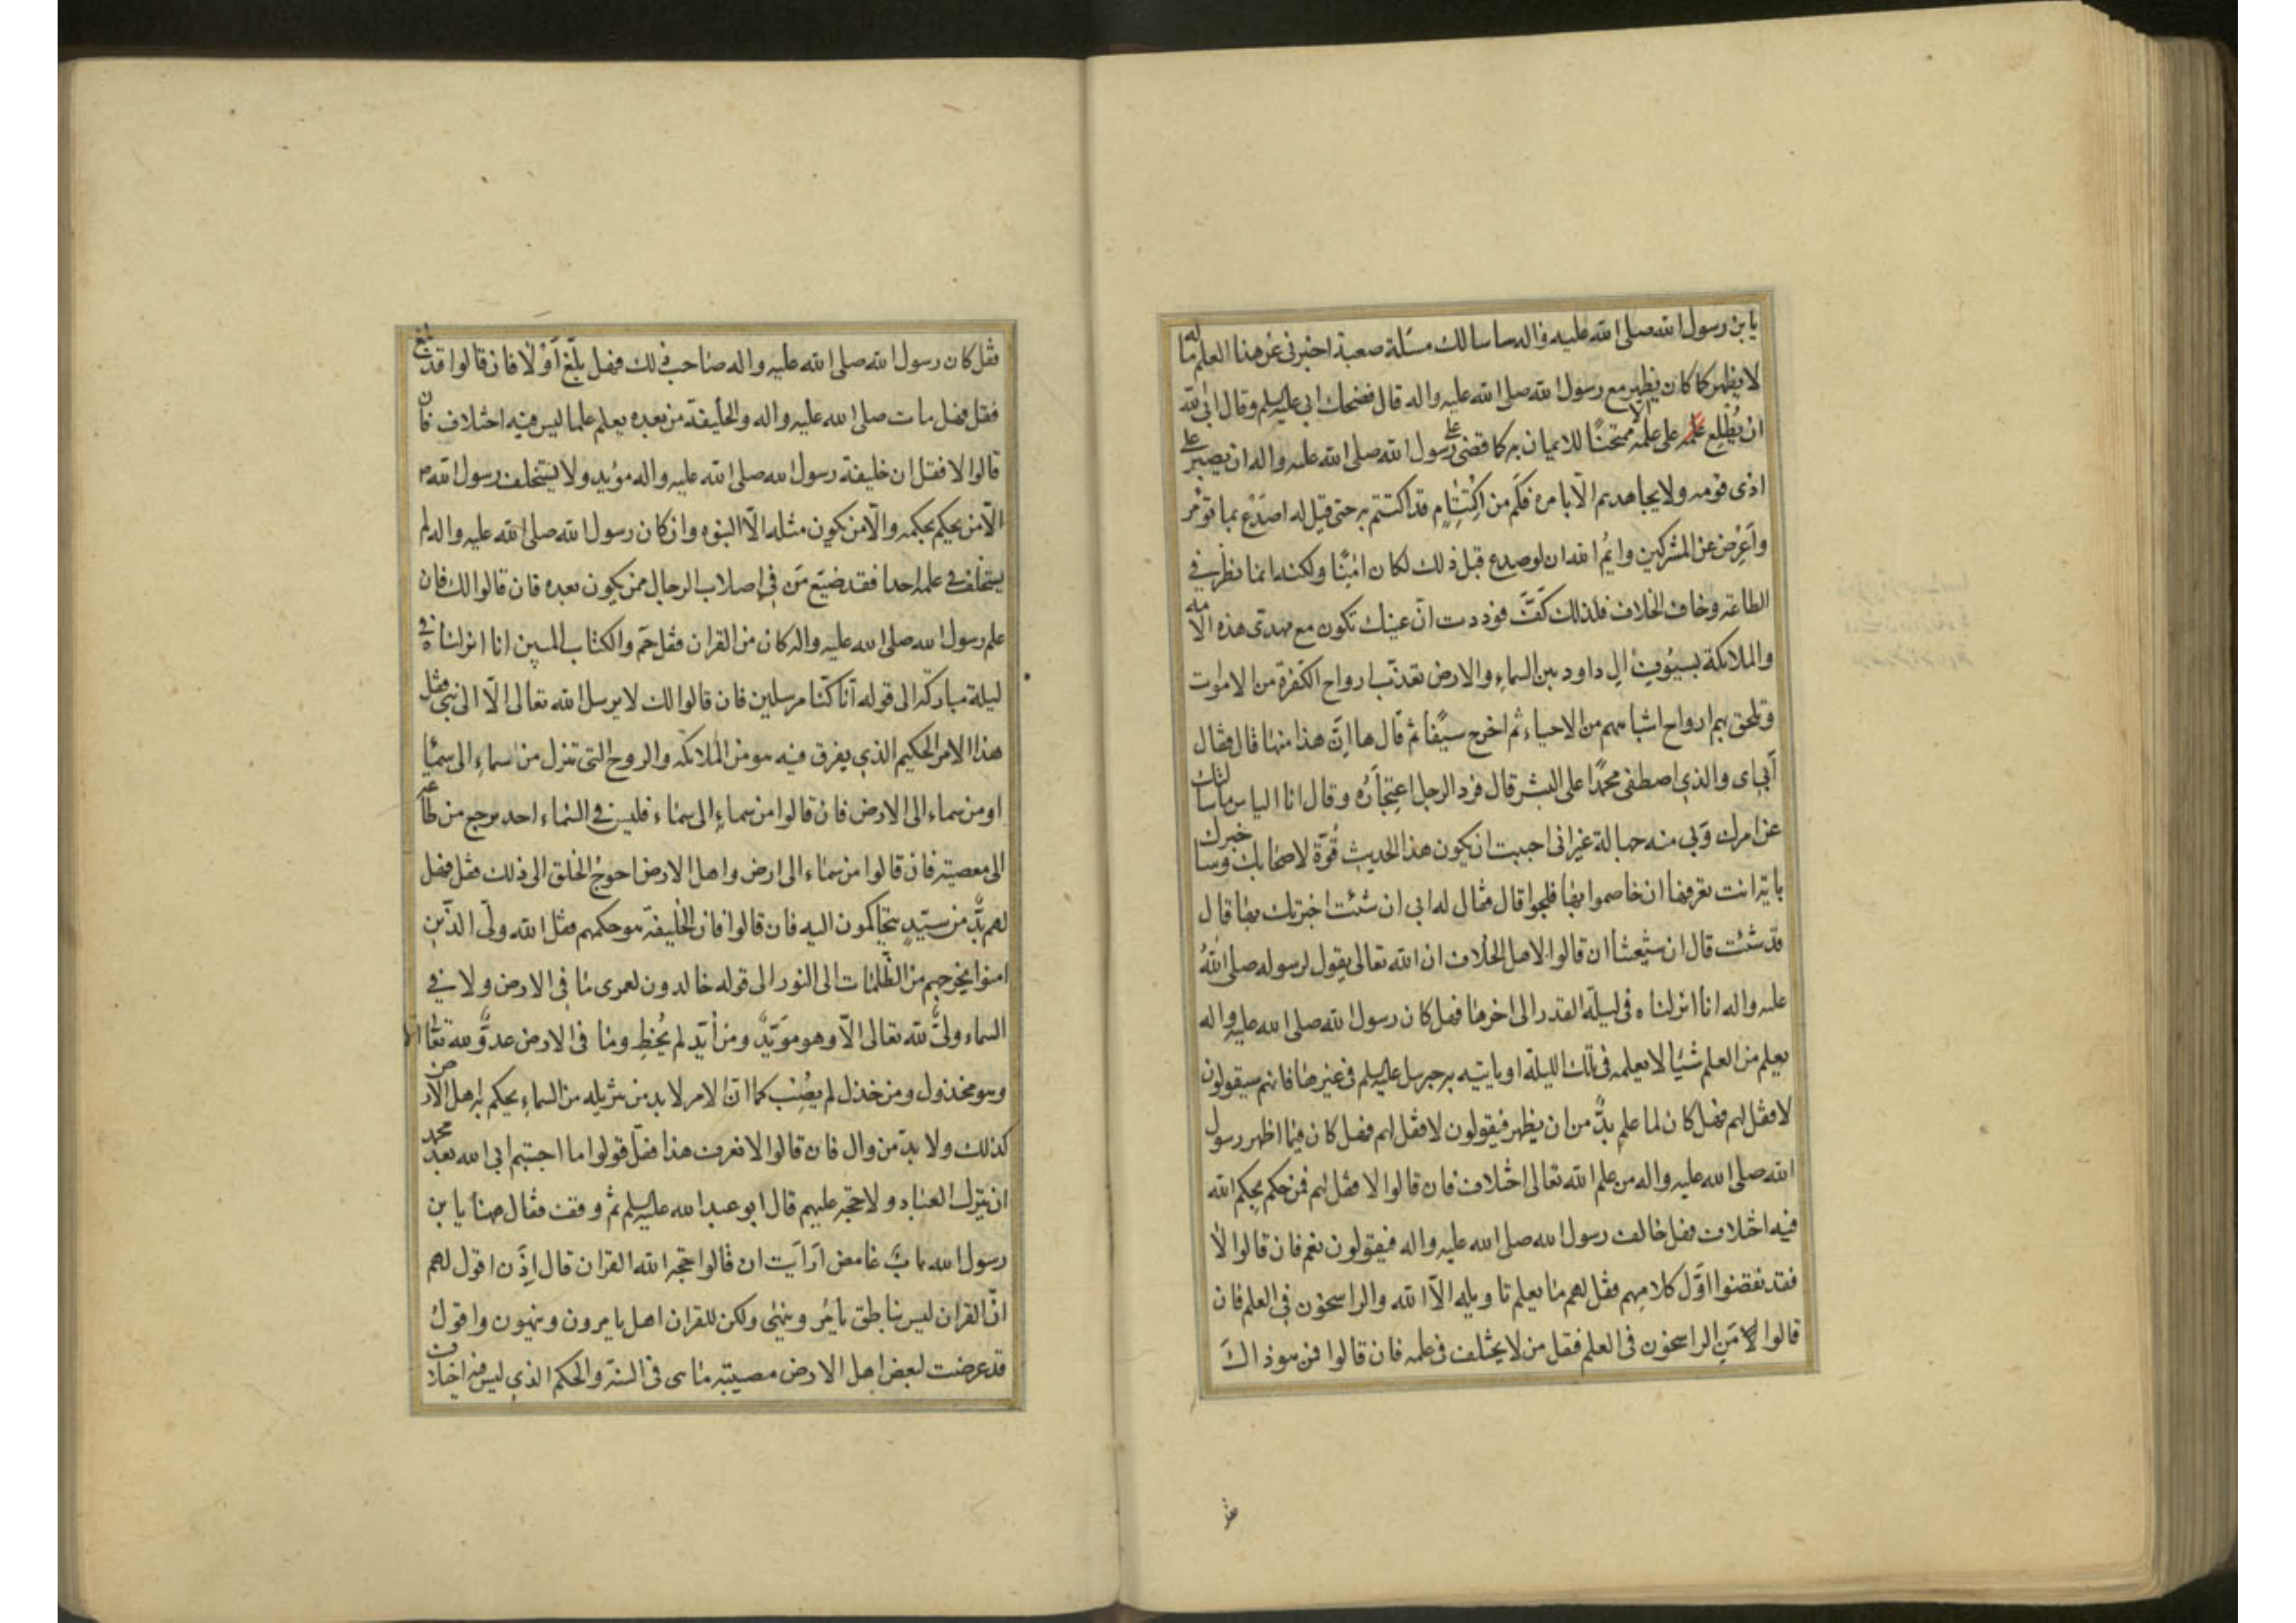 يا بن رسول الله صلى الله عليه واله ساسالك مسئلة صعبة اخبرنى عن هذا العلم ماله
لا يظهر كما كان يظهر مع رسول الله صلى الله عليه واله قال فضحك ابى عليه السلم وقال ابى الله
ان يُطلِع على علمه الا ممتحنًا للايمان به كما قضى على رسول الله صلى الله عليه واله ان يصبر على
اذى قومه ولا يجاهدهم الّا بامره فكَم من اكْتِتٰامٍ قد اكتتم به حتى قيل له اصدَعْ بما تؤمر
وأعْرِض عن المشركين وايْمُ الله ان لو صدع قبل ذلك لكان امنًا ولكنه انما نظر فى
الطاعة وخاف الخلاف فلذلك كَفَّ فوددت انّ عينك تكون مع مهدىّ هذه الامه
والملائكة بسيُوفِ الِ داود بين السماء والارض تعذّب ارواح الكفرة من الاموات
وتلحق بهم ارواح اشباههم من الاحياء ثم اخرج سيفًا ثم قال ها انّ هذا منها قال فقال
أبى اى والذى اصطفى محمدًا على البشر قال فرد الرجل اعتجارَهُ وقال انا الياس ما سالتك
عن امرك وبى منه جهالة غير انى احببت ان يكون هذا الحديث قُوّة لاصحابك وساخبرك
باية انت تعرفها ان خاصموا بها فلجوا قال فقال له ابى ان شئت اخبرتك بها قال
قد شئت قال ان شيعتنا ان قالوا لاهل الخلاف ان الله تعالى يقول لرسوله صلى اللهُ
عليه واله انا انزلناه فى ليلة القدر الى اخرها فهل كان رسول الله صلى الله عليه واله
يعلم من العلم شيئا لا يعلمه فى تلك الليلة او ياتيه به جبرئيل عليه السلم فى غيرها فانهم سيقولون
لا فقل لهم فهل كان لما علم بدٌّ من ان يظهر فيقولون لا فقل لهم فهل كان فيما اظهر رسول
الله صلى الله عليه واله من علم الله تعالى اختلاف فان قالوا لا فقل لهم فمن حكم بحكم الله
فيه اختلاف فهل خالف رسول الله صلى الله عليه واله فيقولون نعم فان قالوا لا
فقد نقضوا اوّل كلامهم فقل لهم ما يعلم تاويله الّا الله والراسخون فى العلم فان
قالوا مَنِ الراسخون فى العلم فقل من لا يختلف فى علمه فان قالوا فمن هو ذاك
فقل كان رسول الله صلى الله عليه واله صاحب ذلك فهل بلّغ أوْ لا فان قالوا قد بلغ
فقل فهل مات صلى الله عليه واله والخليفة من بعده يعلم علما ليس فيه اختلاف فان
قالوا لا فقل ان خليفة رسول الله صلى الله عليه واله مؤيد ولا يستخلف رسول الله ص
الّا من يحكم بحكمه والّا من يكون مثله الّا النبوه وان كان رسول الله صلى الله عليه واله لم
يستخلف فى علمه احدا فقد ضيّع مَن فى اصلاب الرجال ممن يكون بعده فان قالوا لك فان
علم رسول الله صلى الله عليه واله كان من القران فقل حم والكتاب المبين انا انزلناه فى
ليلة مباركة الى قوله انّا كنّا مرسلين فان قالوا لك لا يرسل الله تعالى الّا الى نبى فقل
هذا الامر الحكيم الذى يفرق فيه هو من الملائكه والروح التى تنزل من سماء الى سماء
او من سماء الى الارض فان قالوا من سماء الى سماء فليس فى السماء احد يرجع من طاعه
الى معصيته فان قالوا من سماء الى ارض واهل الارض احوج الخلق الى ذلك فقل فهل
لهم بدٌّ من سيّدٍ يتحاكمون اليه فان قالوا فان الخليفة هو حكمهم فقل الله ولىّ الذين
امنوا يخرجهم من الظلمات الى النور الى قوله خالدون لعمرى ما فى الارض ولا فى
السماء ولىٌّ لله تعالى الّا وهو مؤيّدٌ ومن أيّد لم يُخطِ وما فى الارض عدوٌّ لله تعالى الا
وهو مخذول ومن خذل لم يُصِب كما انّ الامر لا بد من تنزيله من السماء يحكم به اهل الارض
كذلك ولا بدّ من وال فان قالوا لا نعرف هذا فقل قولوا ما احببتم ابى الله بعد محمد
ان يترك العباد ولا حجّة عليهم قال ابو عبد الله عليه السلم ثم وقف فقال ههنا يا بن
رسول الله بابٌ غامض أرأيت ان قالوا حجة الله القران قال إذَن اقول لهم
انّ القران ليس بناطق يأمر وينهى ولكن للقران اهل يامرون وينهون واقول
قد عرضت لبعض اهل الارض مصيبة ما هى فى السنة والحكم الذى ليس فيه اختلاف